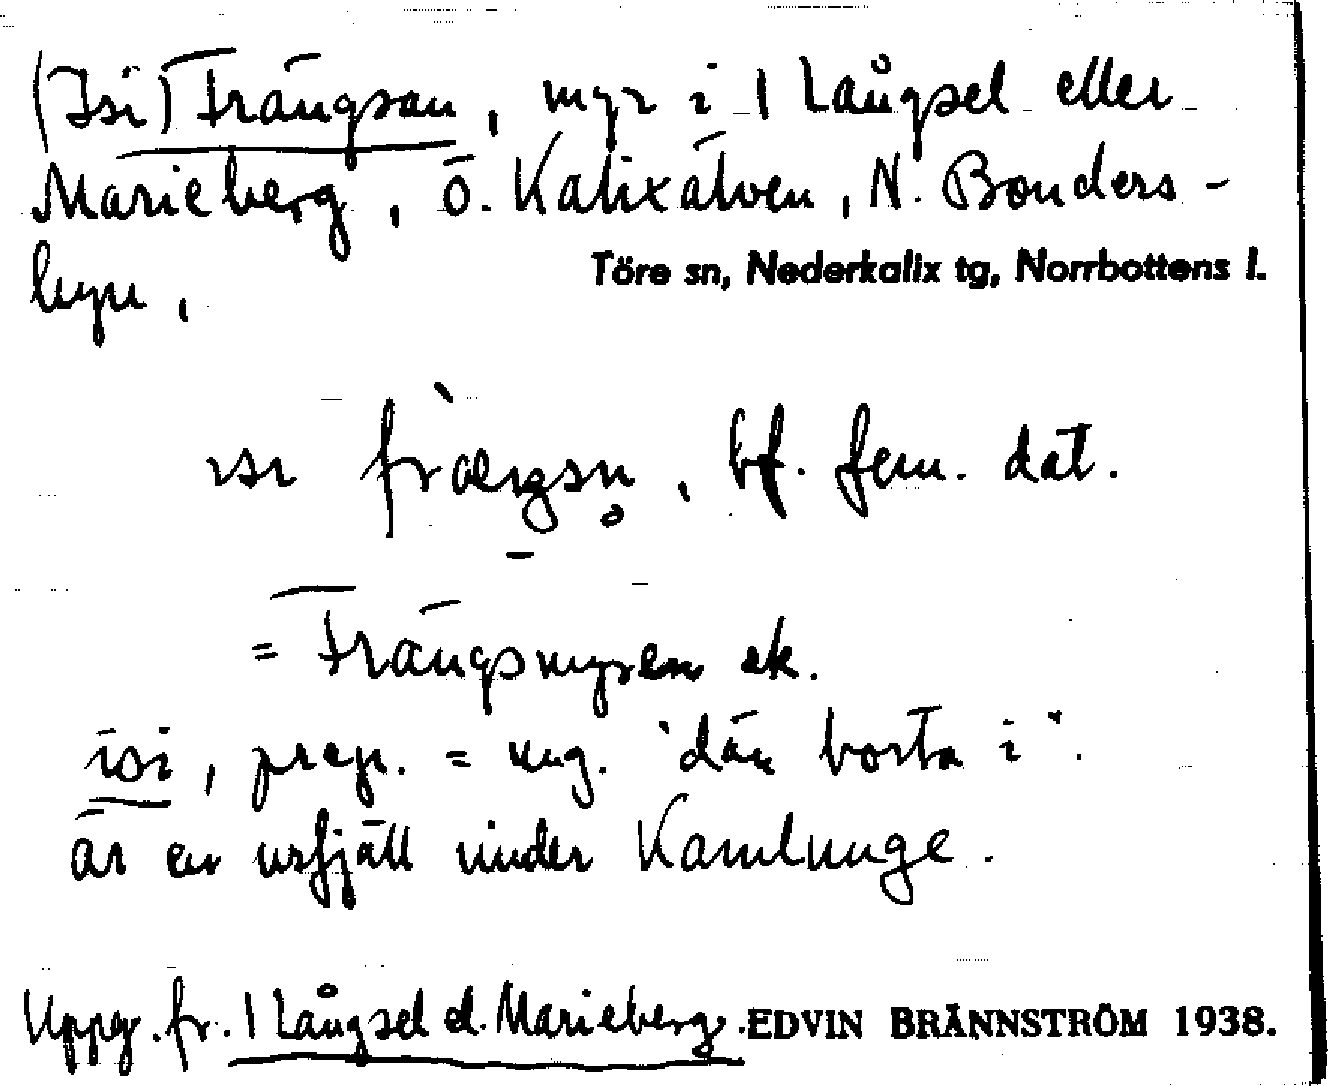 (Isi) Frängsan, myr i 1 Långsel eller
Marieberg, ö. Kalixälven, N. Bonders-
byn,
Töre sn, Nederkalix tg, Norrbottens l.
ısı fræŋsn̥, bf. fem. dat.
= Frängsmyren ek.
isi, prep. = ung. "där borta i".
är en urfjäll under Kamlunge.
Uppg. fr. 1 Långsel el. Marieberg. EDVIN BRÄNNSTRÖM 1938.